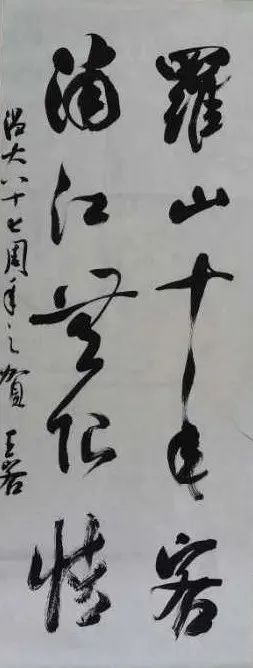 羅山十年客
浦江無限情
温大八十七周年之賀 王客